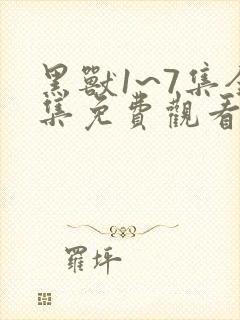 黑獸1~7集全
集免費觀看
羅坪